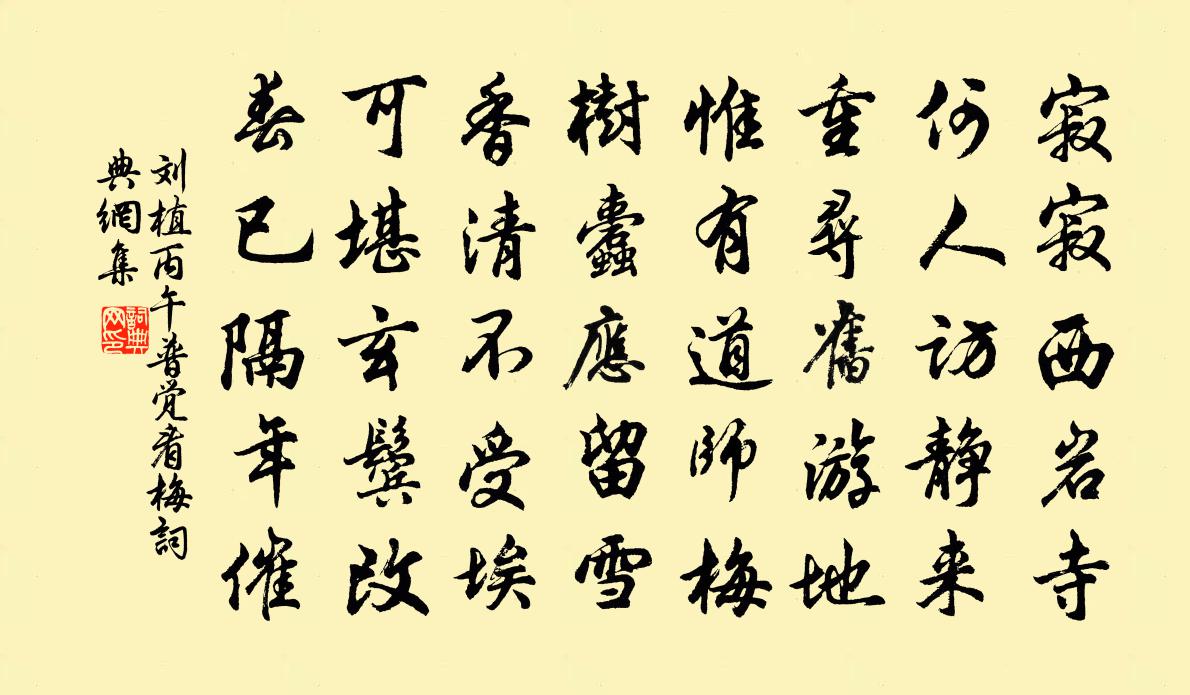 寂寂西岩寺
何人访静来
重尋舊游地
惟有道師梅
樹蠹應留雪
香清不受埃
可堪玄鬢改
春已隔年催
刘植丙午普觉看梅詞
典網集
詞典
网印